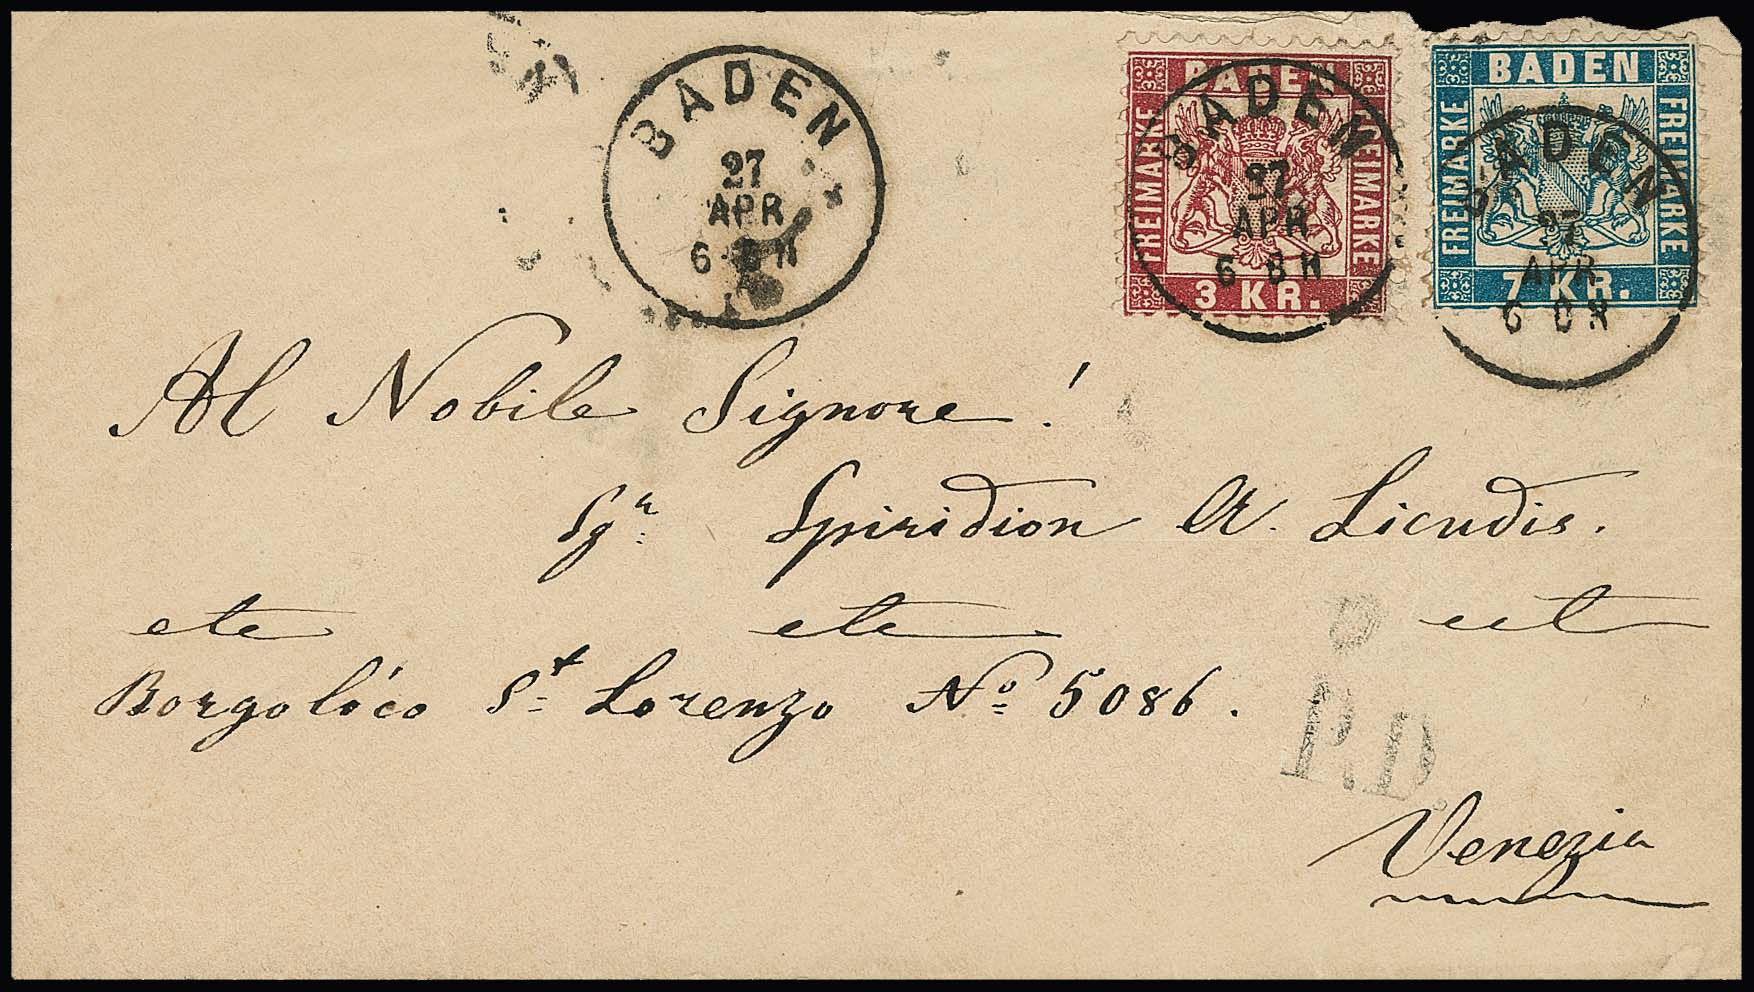 BADEN
27
APR
6 8 N
BADEN
FREIMARKE
FREIMARKE
3 KR.
BADEN
27
APR
6 8 N
BADEN
FREIMARKE
FREIMARKE
7 KR.
BADEN
27
APR
6 8 N
Al Nobile Signore!
Sgr: Spiridion A. Licudis.
etc etc
Borgolóco St Lorenzo No 5086.
P.D.
Venezia